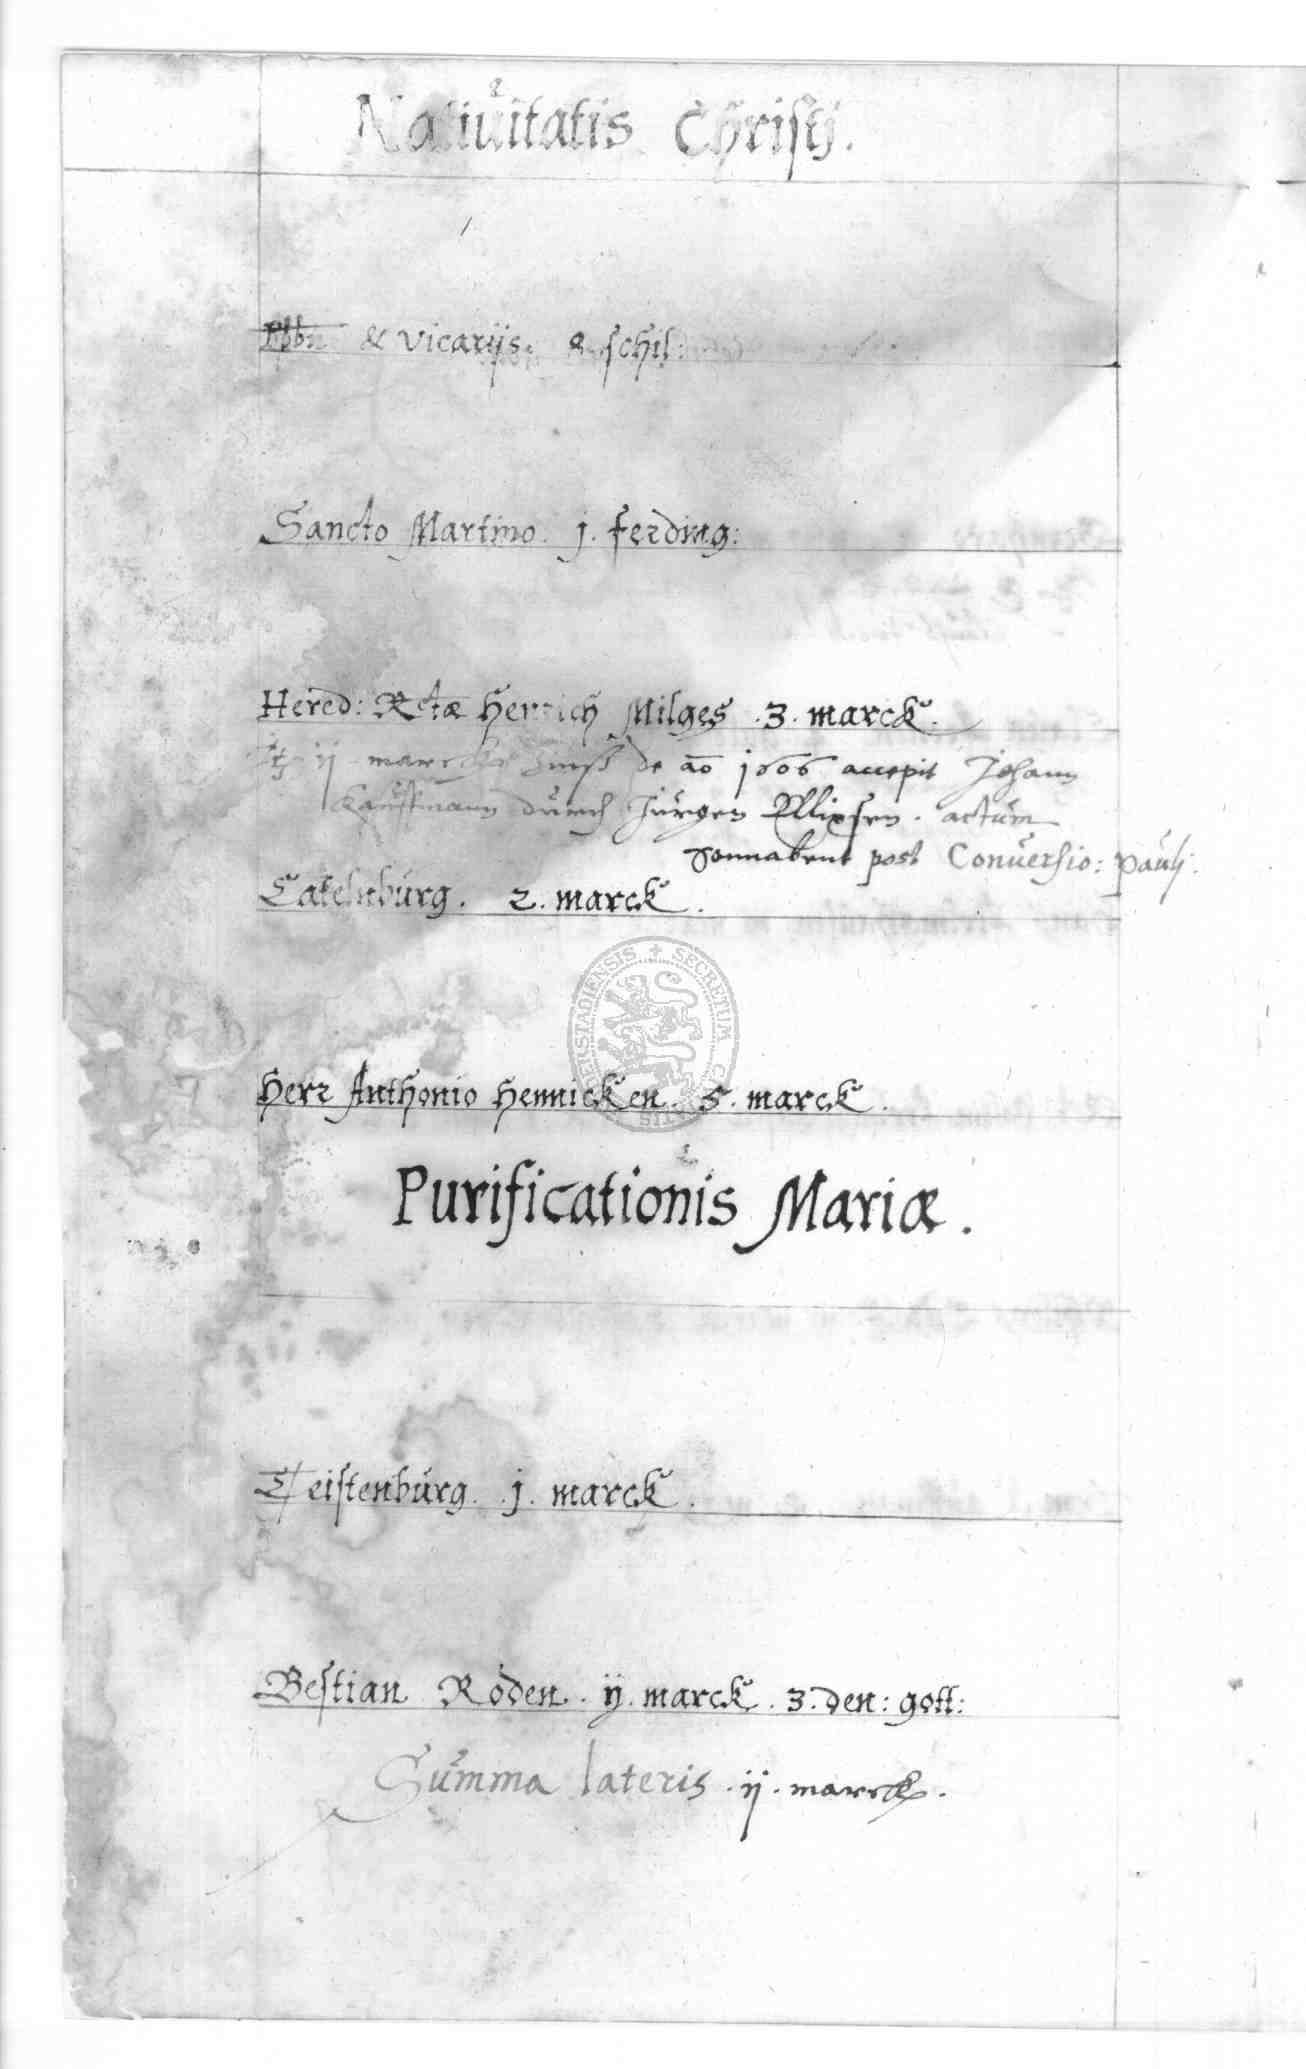 Natiuitatis Christj.
& vicarijs. 8 schil:
Sancto Martino. j. ferding:
Hered: Rctæ Henrich Milges .3. marck.
ij marck Zinß de ao 1606 accepit Johann
Kauffmann durch Jürgen Ellixsen. actum
Sonnabent post Conuersio: Paulj.
Catelnburg. 2. marck.
Herr Anthonio Hennicken. 5. marck.
Purificationis Mariæ.
Teistenburg. j. marck.
Bestian Roden. ij. marck. 3. den: gott:
Summa lateris .ij. marck.